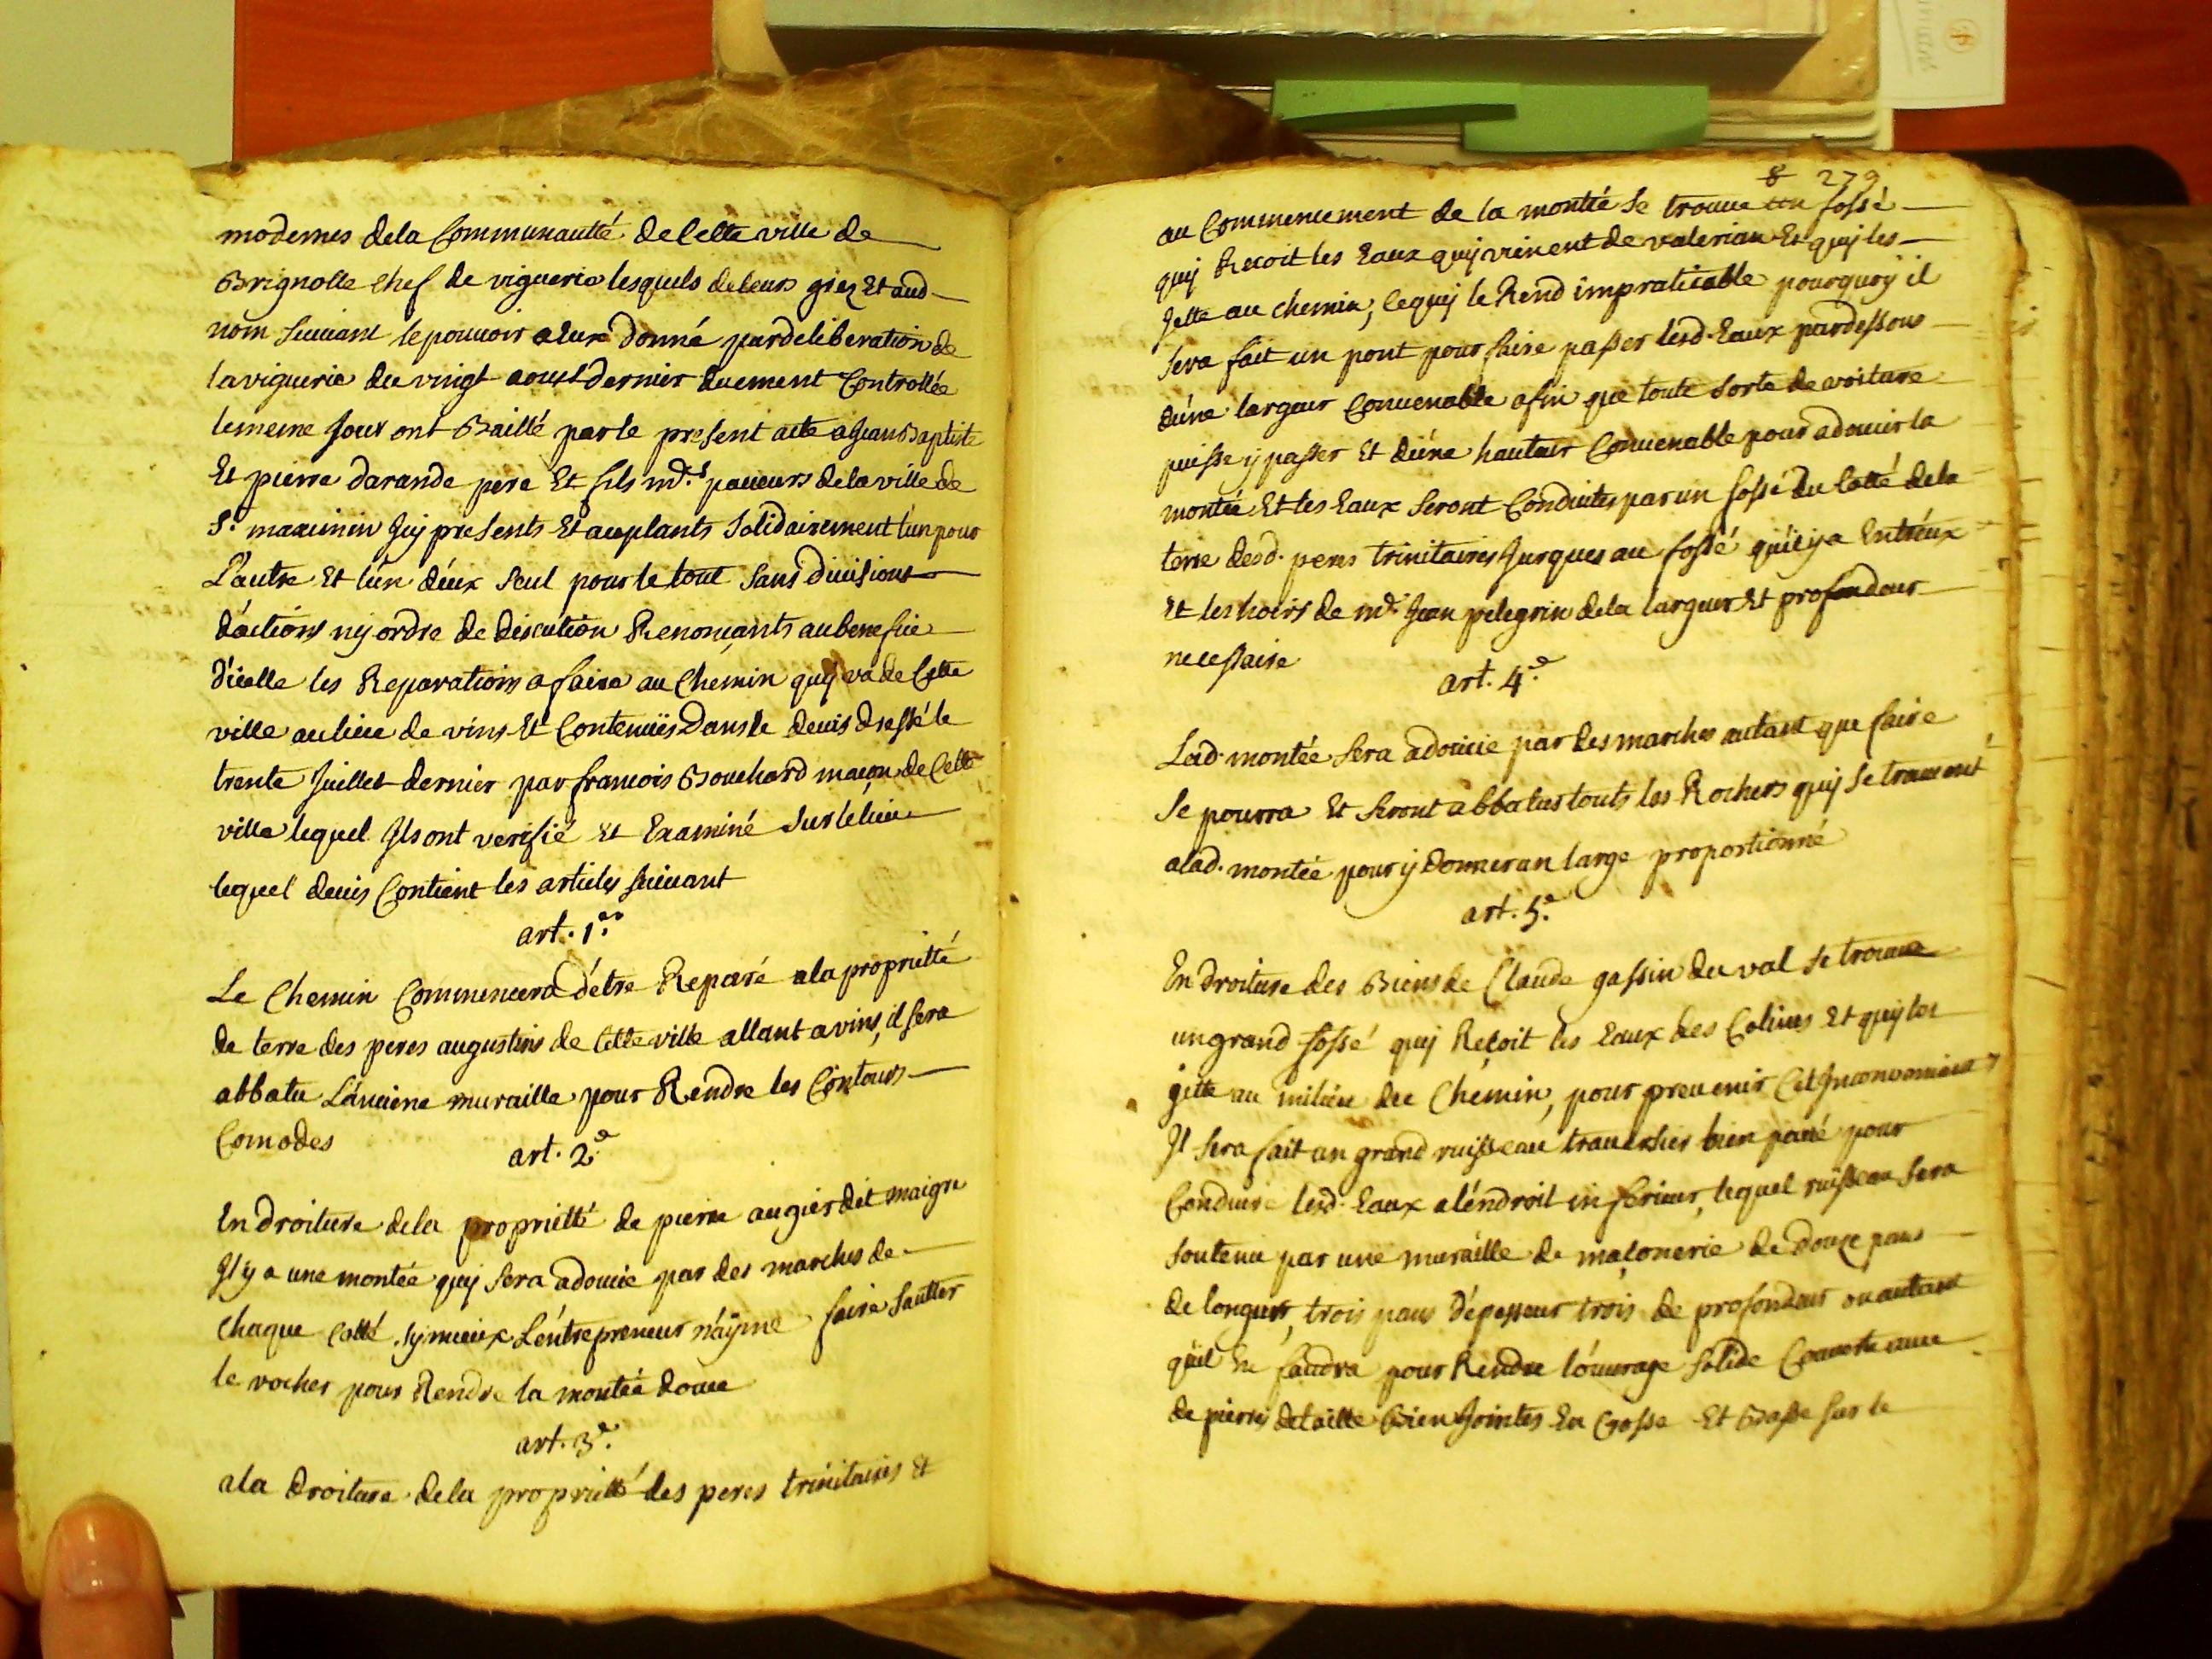 modernes dela Communauté de Cette ville de
Brignolle chef de viguerie lesquels deleurs grez Et aud
nom suiuant lepouuoir a Eux donné pardeliberation de
laviguerie du vingt aoust dernier duement Controllée
lememe Jour ont Baillé parle present acte a Jean Baptiste
Et pierre darande pere Et fils md.s paueurs dela ville de
St. maximin Jcy presents Et acceptants solidairement l'un pour
L'autre Et l'un d'eux seul pour le tout sans diuisions
d'actions ny ordre de discution Renonçants au benefice
d'icelle les Reparations a faire au Chemin quy va de Cette
ville au lieu de vins Et Contenües Dans le deuis dressé le
trente Juillet dernier par francois Bouchard maçon de Cette
ville lequel Jls ont verifié Et Examiné sur le lieu
lequel deuis Contient les articles suiuant
art. 1.er
Le Chemin Commencera d'etre Reparé ala proprieté
de terre des peres augustins de Cette ville allant a vins, il sera
abbatu L'anciene muraille pour Rendre les Contours
Comodes
art. 2.e
En droiture dela proprietté de pierre augier dit maigre
Jl y a une montée quy sera adoucie par des marches de
Chaque Cotté sy mieux L'entrepreneur n'ayme faire sautter
le rocher pour Rendre la montée douce
art. 3.e
ala droiture dela proprietté des peres trinitaires Et
8 279
au Commencement de la montée se trouue un fossé
quy Recoit les Eaux quy vienent de valerian Et quy les
Jette au chemin, lequy le Rend impraticable pourquoy il
sera fait un pont pour faire passer lesd. Eaux pardessous
d'une largeur Conuenable afin que toute sorte de voiture
puisse y passer Et d'une hauteur Conuenable pour adoucir la
montée Et les Eaux seront Conduites par un fossé du Cotté dela
terre desd. peres trinitaires Jusques au fossé qu'il y a Entr'eux
Et les hoirs de md. Jean pelegrin dela largeur Et profondeur
necessaire
art. 4.e
Lad. montée sera adoucie par des marches autant que faire
se pourra Et seront abbatus touts les Rochers quy se trouuent
a lad. montée pour y donner un large proportionné
art. 5.e
En droiture des Biens de Claude gassin du val se trouue
un grand fossé quy Reçoit les Eaux des Colines Et quy les
jette au milieu du Chemin, pour preuenir Cet Jnconvenient
Jl sera fait un grand ruisseau trauersier bien paué pour
Conduire lesd. Eaux a l'endroit inferieur, lequel ruisseau sera
soutenu par une muraille de maçonerie de douze pans
de longueur, trois pans d'épesseur trois de profondeur ou autant
qu'il En faudra pour Rendre l'ouurage solide Couuerte auec
de pierres detaille Bien Jointes En Crosse Et Basse sur le